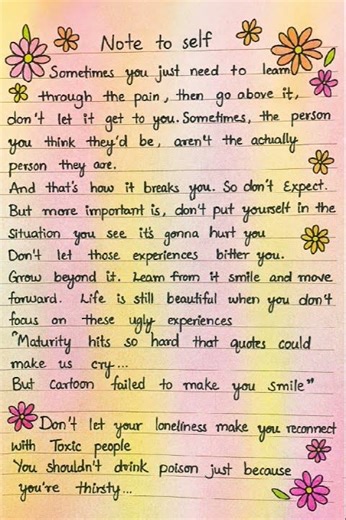 Note to self
Sometimes you just need to learn
through the pain, then go above it,
don't let it get to you. Sometimes, the person
you think they'd be, aren't the actually
person they are.
And that's how it breaks you. So don't Expect.
But more important is, don't put yourself in the
situation you see it's gonna hurt you
Don't let those experiences bitter you.
Grow beyond it. Learn from it smile and move
forward. Life is still beautiful when you don't
focus on these ugly experiences
"Maturity hits so hard that quotes could
make us cry...
But Cartoon failed to make you smile"
Don't let your loneliness make you reconnect
with Toxic people
You shouldn't drink poison just because
you're thirsty...